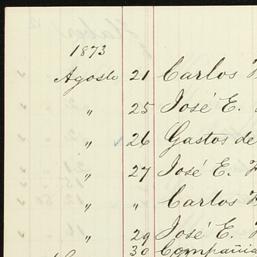 1873
Agosto 21 Carlos
" 25 José E.
" 26 Gastos de
" 27 José E.
" " Carlos
" 29 José E.
30 Compañia